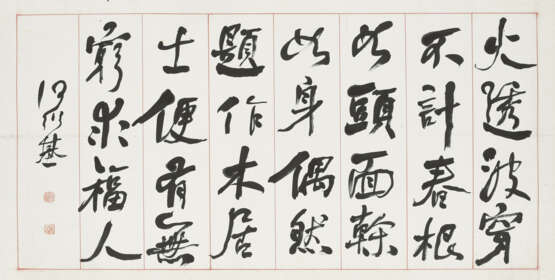 火透波穿
不計春根
如頭面幹
如身偶然
題作木居
士便有無
窮求福人
何紹基